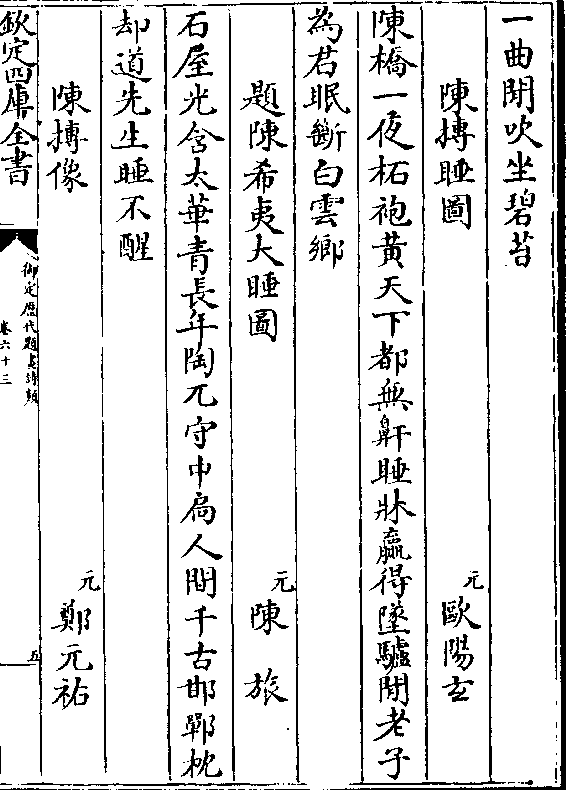 一曲閒吹坐碧苔
陳摶睡圖
元 歐陽玄
陳橋一夜柘袍黃天下都無鼾睡牀贏得墜驢閒老子
為君眠斷白雲鄉
題陳希夷大睡圖
元 陳旅
石屋光含太華青長年陶兀守中扃人間千古邯鄲枕
却道先生睡不醒
陳摶像
元 鄭元祐
欽定四庫全書
御定歴代題畫詩類
卷六十三
五